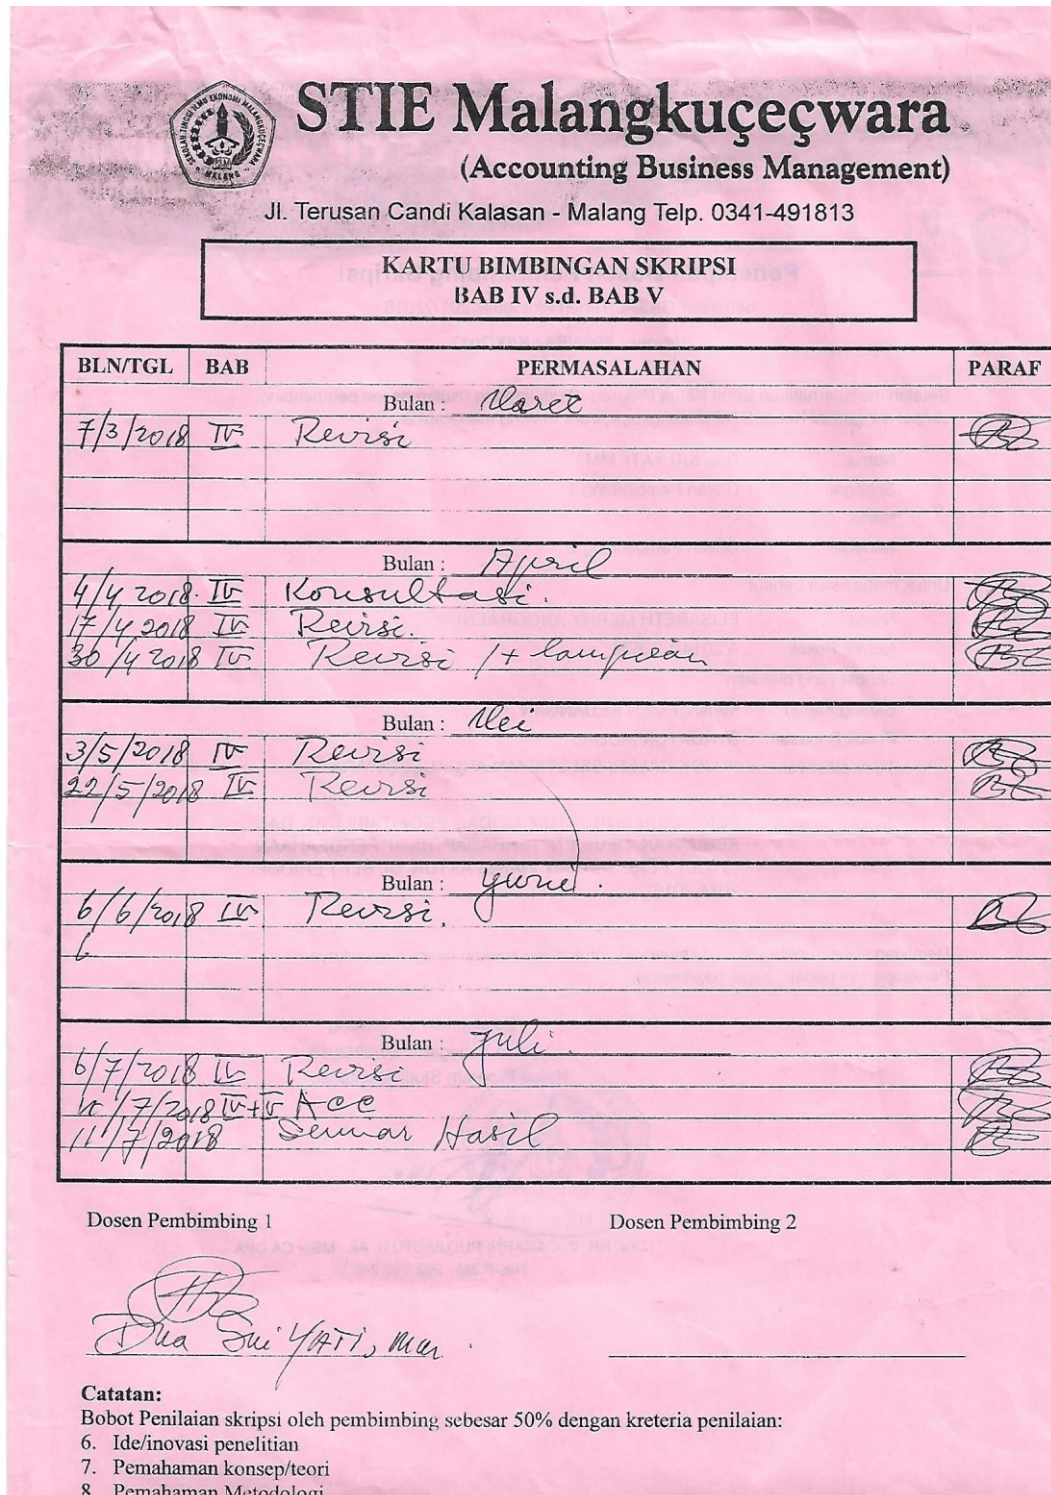 SEKOLAH TINGGI ILMU EKONOMI MALANGKUÇEÇWARA
MALANG
STIE Malangkuçeçwara
(Accounting Business Management)
Jl. Terusan Candi Kalasan - Malang Telp. 0341-491813
KARTU BIMBINGAN SKRIPSI
BAB IV s.d. BAB V
BLN/TGL BAB PERMASALAHAN PARAF
Bulan : Maret
7/3/2018 IV Revisi
Bulan : April
4/4 2018. IV Konsultasi.
17/4 2018 IV Revisi.
30/4 2018 IV Revisi /+ lampiran
Bulan : Mei
3/5/2018 IV Revisi
22/5/2018 IV Revisi
Bulan : Yuni.
6/6/2018 IV Revisi.
Bulan : Juli.
6/7/2018 IV Revisi
/7/2018 IV+V Acc
11/7/2018 Seminar Hasil
Dosen Pembimbing 1 Dosen Pembimbing 2
Dra Sri YATI, MM.
Catatan:
Bobot Penilaian skripsi oleh pembimbing sebesar 50% dengan kreteria penilaian:
6. Ide/inovasi penelitian
7. Pemahaman konsep/teori
8. Pemahaman Metodologi